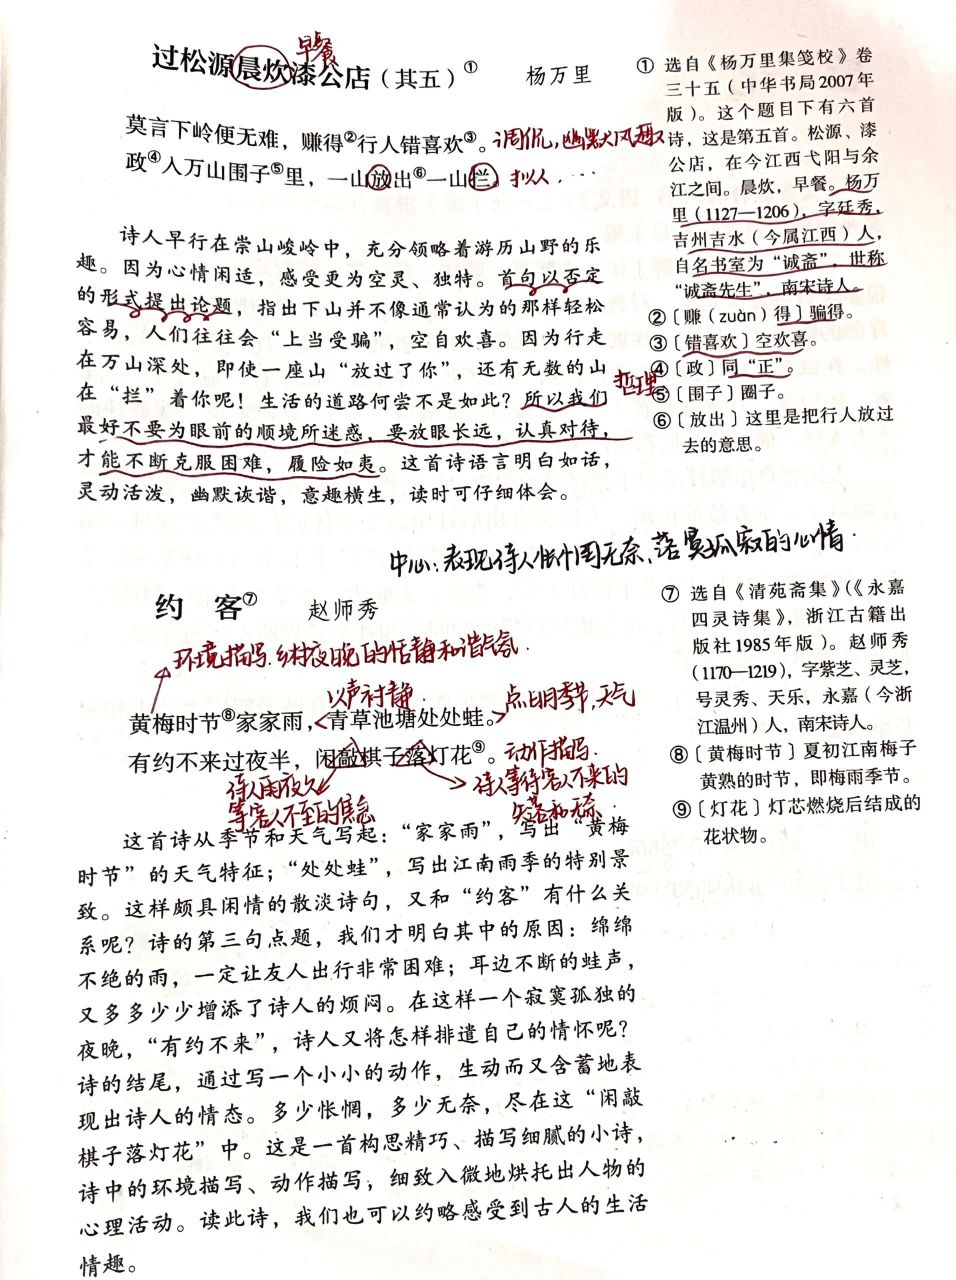 早餐
过松源晨炊漆公店（其五）① 杨万里
莫言下岭便无难，赚得②行人错喜欢③。调侃，幽默风趣
政④入万山围子⑤里，一山放出⑥一山拦。拟人...
诗人早行在崇山峻岭中，充分领略着游历山野的乐
趣。因为心情闲适，感受更为空灵、独特。首句以否定
的形式提出论题，指出下山并不像通常认为的那样轻松
容易，人们往往会“上当受骗”，空自欢喜。因为行走
在万山深处，即使一座山“放过了你”，还有无数的山
在“拦”着你呢！生活的道路何尝不是如此？所以我们
哲理
最好不要为眼前的顺境所迷惑，要放眼长远，认真对待，
才能不断克服困难，履险如夷。这首诗语言明白如话，
灵动活泼，幽默诙谐，意趣横生，读时可仔细体会。
① 选自《杨万里集笺校》卷
三十五（中华书局2007年
版）。这个题目下有六首
诗，这是第五首。松源、漆
公店，在今江西弋阳与余
江之间。晨炊，早餐。杨万
里（1127—1206），字廷秀，
吉州吉水（今属江西）人，
自名书室为“诚斋”，世称
“诚斋先生”，南宋诗人。
②〔赚（zuàn）得〕骗得。
③〔错喜欢〕空欢喜。
④〔政〕同“正”。
⑤〔围子〕圈子。
⑥〔放出〕这里是把行人放过
去的意思。
中心：表现诗人怅惘无奈、落寞孤寂的心情.
约 客⑦ 赵师秀
环境描写.乡村夜晚的恬静和谐气氛.
以声衬静 点明季节,天气
黄梅时节⑧家家雨，青草池塘处处蛙。
有约不来过夜半，闲敲棋子落灯花⑨。动作描写.
诗人雨夜久
等客人不至的焦急
诗人等待客人不来的
失落和无奈.
这首诗从季节和天气写起：“家家雨”，写出“黄梅
时节”的天气特征；“处处蛙”，写出江南雨季的特别景
致。这样颇具闲情的散淡诗句，又和“约客”有什么关
系呢？诗的第三句点题，我们才明白其中的原因：绵绵
不绝的雨，一定让友人出行非常困难；耳边不断的蛙声，
又多多少少增添了诗人的烦闷。在这样一个寂寞孤独的
夜晚，“有约不来”，诗人又将怎样排遣自己的情怀呢？
诗的结尾，通过写一个小小的动作，生动而又含蓄地表
现出诗人的情态。多少怅惘，多少无奈，尽在这“闲敲
棋子落灯花”中。这是一首构思精巧、描写细腻的小诗，
诗中的环境描写、动作描写，细致入微地烘托出人物的
心理活动。读此诗，我们也可以约略感受到古人的生活
情趣。
⑦ 选自《清苑斋集》（《永嘉
四灵诗集》，浙江古籍出
版社1985年版）。赵师秀
（1170—1219），字紫芝、灵芝，
号灵秀、天乐，永嘉（今浙
江温州）人，南宋诗人。
⑧〔黄梅时节〕夏初江南梅子
黄熟的时节，即梅雨季节。
⑨〔灯花〕灯芯燃烧后结成的
花状物。